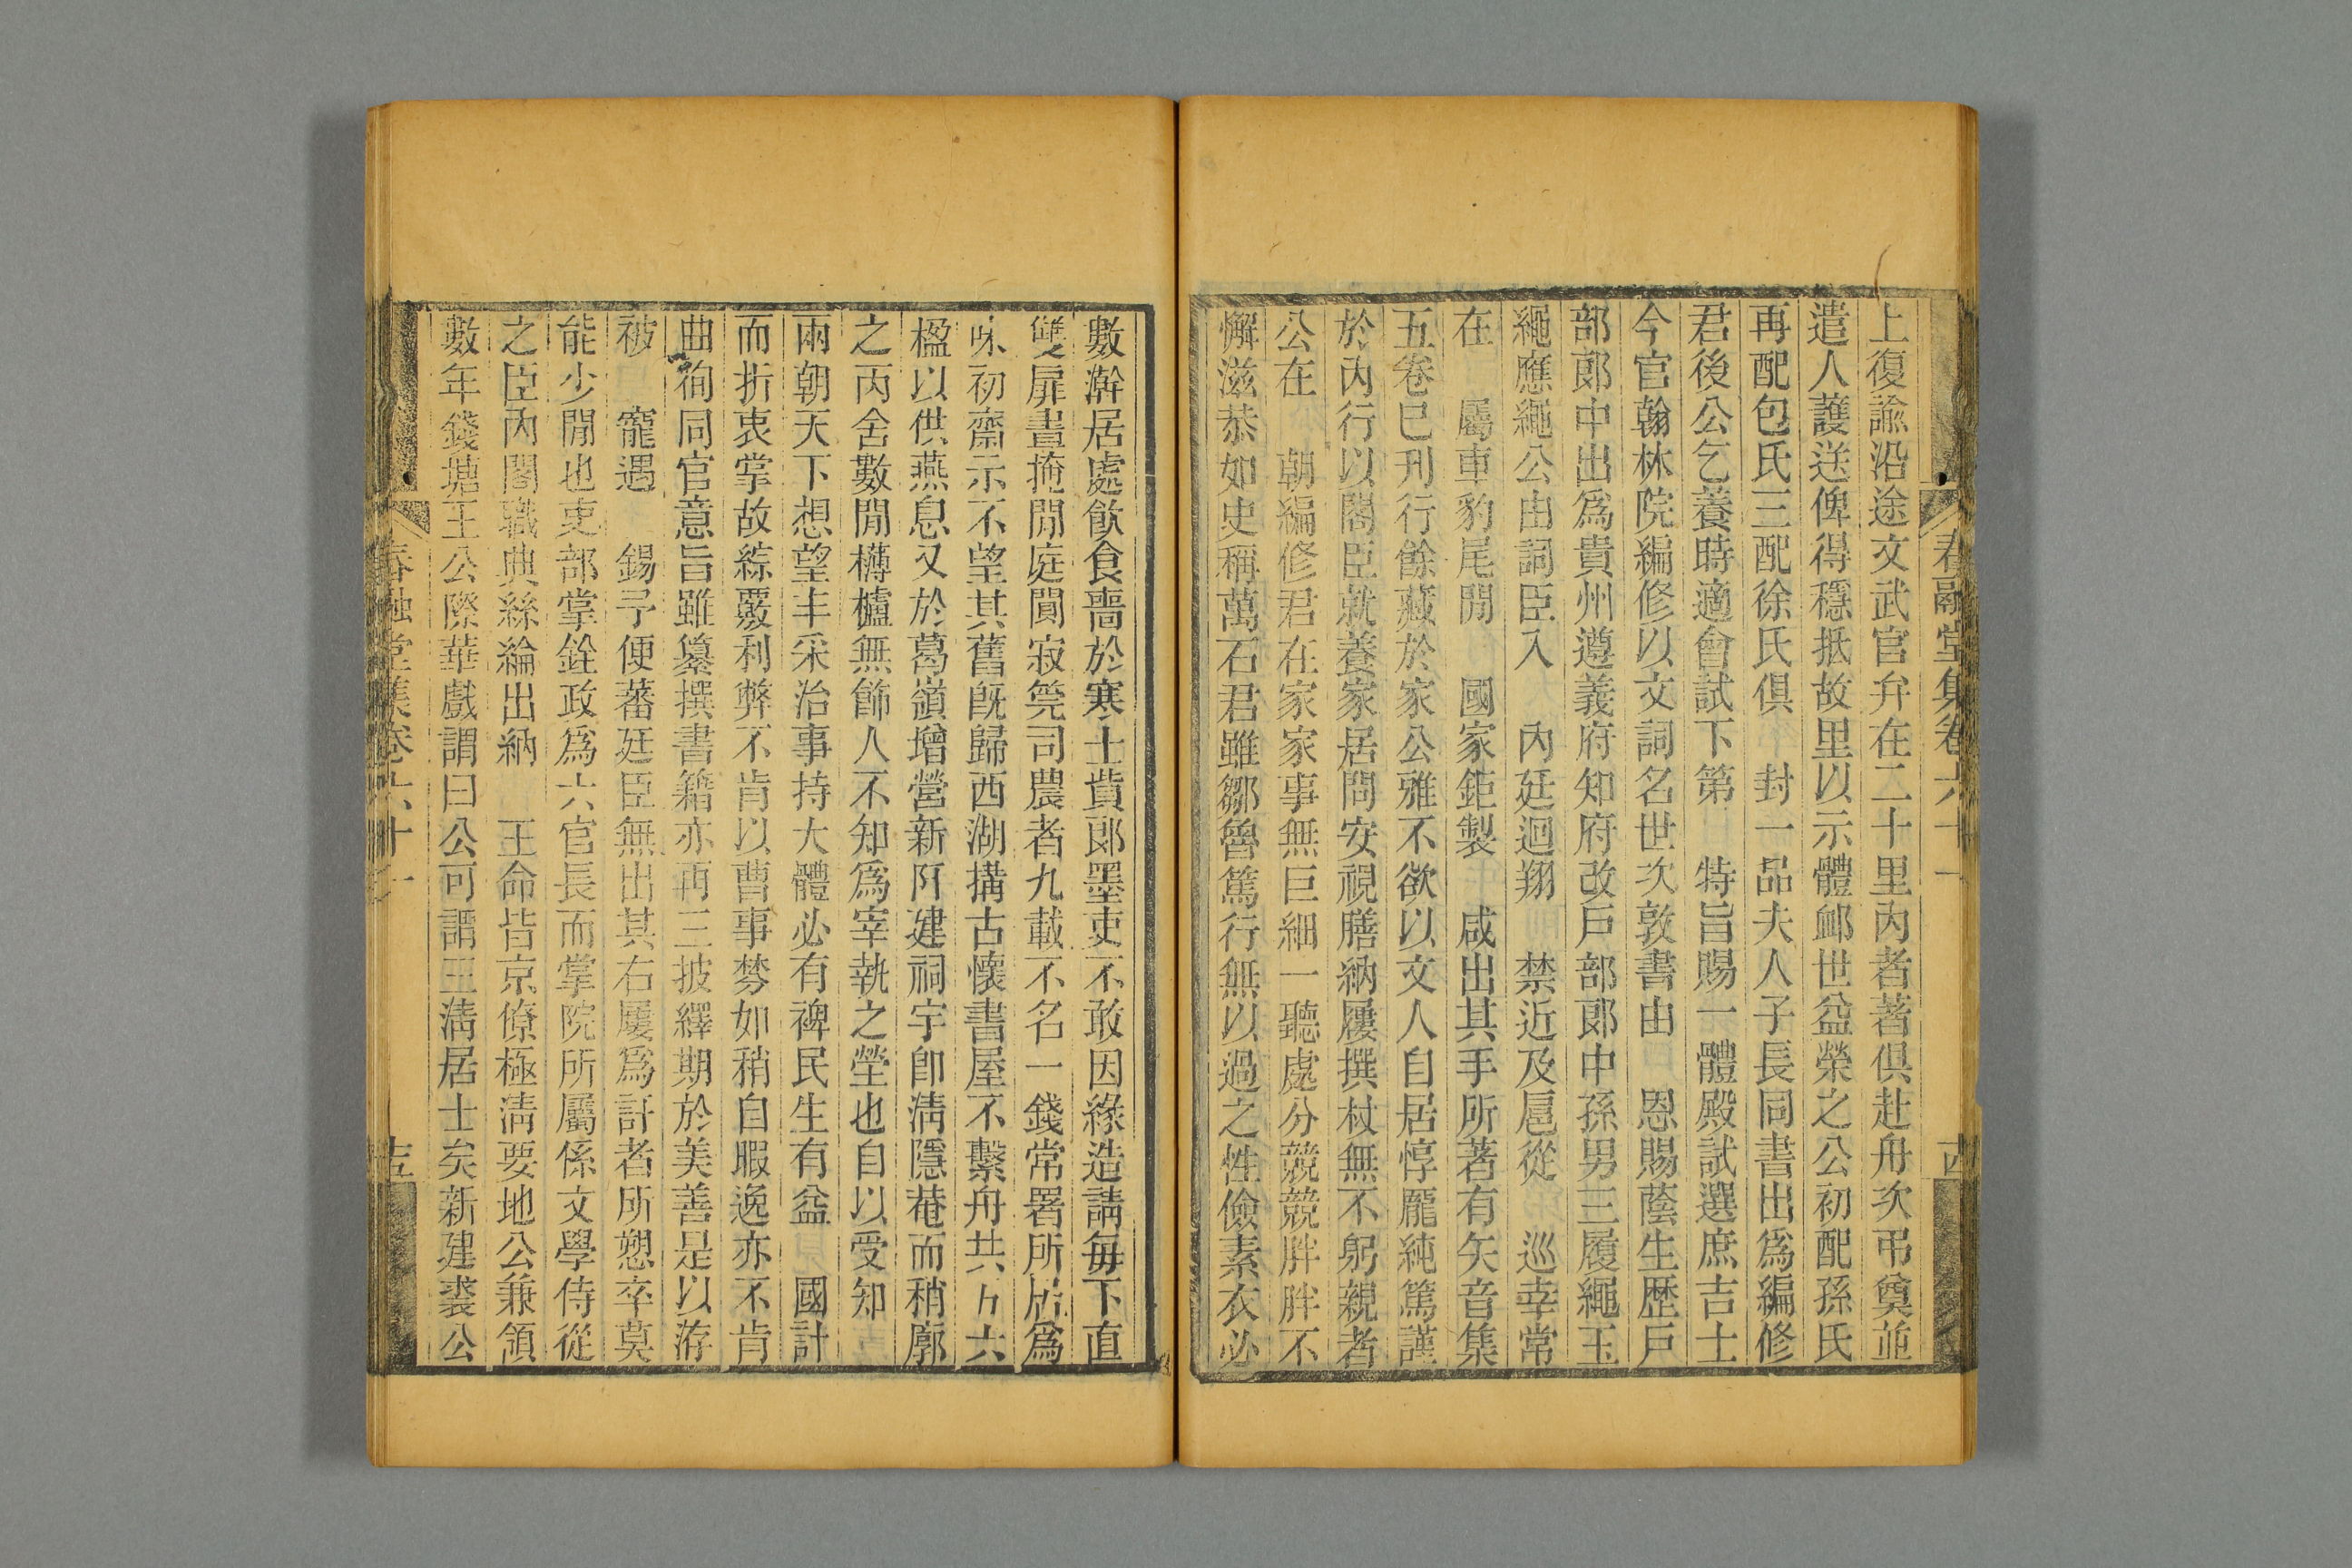 上復諭沿途文武官弁在二十里內者著俱赴舟次弔奠並
遣人護送俾得穩抵故里以示體䘏世益榮之公初配孫氏
再配包氏三配徐氏俱 封一品夫人子長同書出爲編修
君後公乞養時適會試下第 特旨賜一體殿試選庶吉士
今官翰林院編修以文詞名世次敦書由 恩賜蔭生歷戶
部郎中出爲貴州遵義府知府改戶部郎中孫男三履繩玉
繩應繩公由詞臣入 內廷迴翔 禁近及扈從 巡幸常
在 屬車豹尾閒 國家鉅製 咸出其手所著有矢音集
五卷已刊行餘藏於家公雅不欲以文人自居惇龎純篤謹
於內行以閣臣就養家居問安視膳納屨撰杖無不躬親者
公在 朝編修君在家家事無巨細一聽處分競競胖胖不
懈滋恭如史稱萬石君雖鄒魯篤行無以過之性儉素衣必
春融堂集卷六十一
古
數澣居處飲食嗇於寒士貲郎墨吏不敢因緣造請每下直
雙扉晝掩閒庭閴寂筦司農者九載不名一錢常署所居爲
味初齋示不望其舊旣歸西湖搆古懷書屋不繫舟共方六
楹以供燕息又於葛嶺增營新阡建祠宇卽淸隱菴而稍廓
之丙舍數閒欂櫨無飾人不知爲宰執之塋也自以受知
兩朝天下想望丰采治事持大體必有裨民生有益 國計
而折衷掌故綜覈利弊不肯以曹事棼如稍自暇逸亦不肯
曲徇同官意旨雖纂撰書籍亦再三披繹期於美善是以洊
被 寵遇 錫予便蕃廷臣無出其右屢爲訐者所愬卒莫
能少閒也吏部掌銓政爲六官長而掌院所屬係文學侍從
之臣內閣職典絲綸出納 王命皆京僚極淸要地公兼領
數年錢塘王公際華戲謂曰公可謂三淸居士矣新建裘公
春融堂集卷六十一
十五